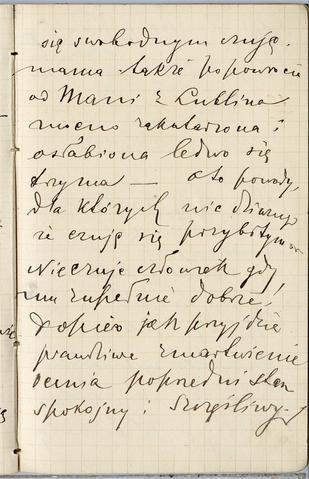 się swobodnym czuję.
mama także po powrocie
od Mani z Lublina
mocno zakatarzona i
osłabiona ledwo się
trzyma — oto powody,
dla których nic dziwnego
że czuję się przybitym
Nie czuje człowiek gdy
mu zupełnie dobrze,
dopiero jak przyjdzie
prawdziwe zmartwienie
ocenia poprzedni stan
spokojny i szczęśliwy.